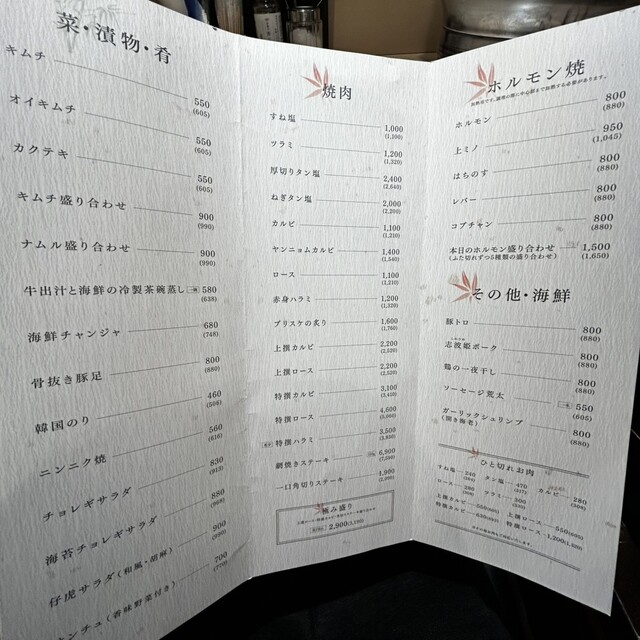 菜・漬物・肴
キムチ 550
(605)
オイキムチ 550
(605)
カクテキ 550
(605)
キムチ盛り合わせ 900
(990)
ナムル盛り合わせ 900
(990)
牛出汁と海鮮の冷製茶碗蒸し 580
(638)
海鮮チャンジャ 680
(748)
骨抜き豚足 800
(880)
韓国のり 460
(506)
ニンニク焼 560
(616)
チョレギサラダ 830
(913)
海苔チョレギサラダ 880
(968)
仔虎サラダ(和風・胡麻) 900
(990)
(香味野菜付き) 700
(770)
焼肉
すね塩 1,000
(1,100)
ツラミ 1,200
(1,320)
厚切りタン塩 2,400
(2,640)
ねぎタン塩 2,000
(2,200)
カルビ 1,100
(1,210)
ヤンニョムカルビ 1,400
(1,540)
ロース 1,100
(1,210)
赤身ハラミ 1,200
(1,320)
ブリスケの炙り 1,600
(1,760)
上撰カルビ 2,200
(2,420)
上撰ロース 2,200
(2,420)
特撰カルビ 3,100
(3,410)
特撰ロース 4,600
(5,060)
特撰ハラミ 3,500
(3,850)
網焼きステーキ 6,900
(7,590)
一口角切りステーキ 1,900
(2,090)
極み盛り
2,900(3,190)
ホルモン焼
ホルモン 800
(880)
上ミノ 950
(1,045)
はちのす 800
(880)
レバー 800
(880)
コプチャン 800
(880)
本日のホルモン盛り合わせ 1,500
(ふた切れずつ5種類の盛り合わせ) (1,650)
その他・海鮮
豚トロ 800
(880)
志波姫ポーク 800
(880)
鶏の一夜干し 800
(880)
ソーセージ荒太 550
(605)
ガーリックシュリンプ 800
(開き海老) (880)
ひと切れお肉
すね塩 240
(264)
タン塩 470
(517)
カルビ 280
(308)
ロース
ツラミ 300
上撰カルビ 550(605)
上撰ロース 550(605)
特撰カルビ
特撰ロース 1,200(1,320)